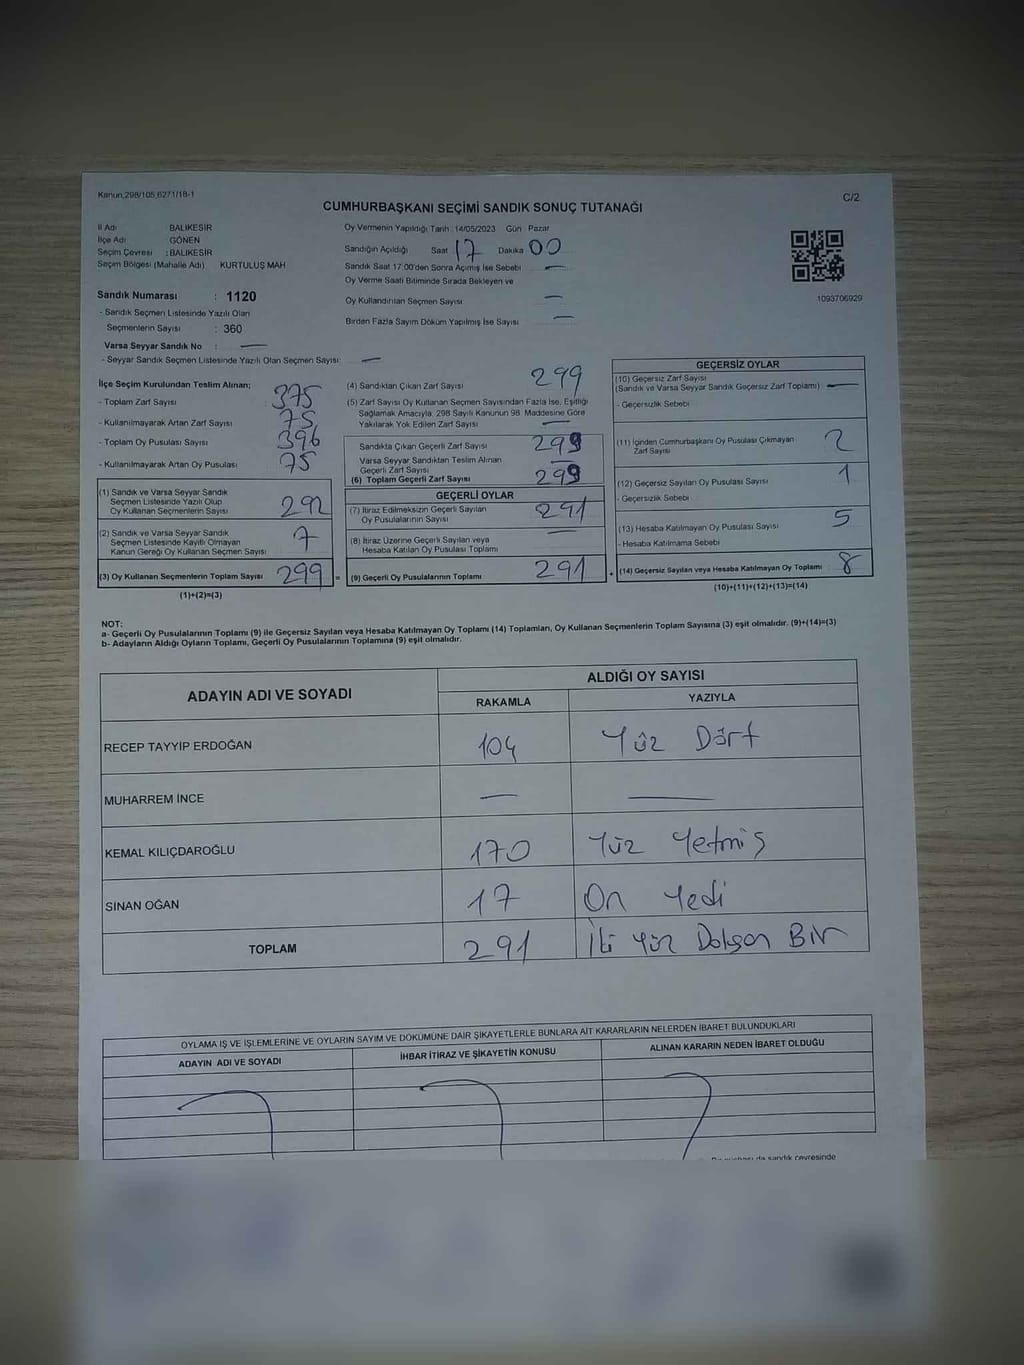 Kanun,298/105,6271/18-1
C/2
CUMHURBAŞKANI SEÇİMİ SANDIK SONUÇ TUTANAĞI
İl Adı BALIKESİR
İlçe Adı GÖNEN
Seçim Çevresi : BALIKESİR
Seçim Bölgesi (Mahalle Adı) KURTULUŞ MAH
Sandık Numarası : 1120
- Sandık Seçmen Listesinde Yazılı Olan
Seçmenlerin Sayısı : 360
Varsa Seyyar Sandık No : —
- Seyyar Sandık Seçmen Listesinde Yazılı Olan Seçmen Sayısı: —
Oy Vermenin Yapıldığı Tarih :14/05/2023 Gün Pazar
Sandığın Açıldığı Saat 17 Dakika 00
Sandık Saat 17:00'den Sonra Açımış İse Sebebi —
Oy Verme Saati Bitiminde Sırada Bekleyen ve
Oy Kullandırılan Seçmen Sayısı —
Birden Fazla Sayım Döküm Yapılmış İse Sayısı —
1093706929
İlçe Seçim Kurulundan Teslim Alınan;
- Toplam Zarf Sayısı : 375
- Kullanılmayarak Artan Zarf Sayısı : 75
- Toplam Oy Pusulası Sayısı : 396
- Kullanılmayarak Artan Oy Pusulası 75
(1) Sandık ve Varsa Seyyar Sandık
Seçmen Listesinde Yazılı Olup
Oy Kullanan Seçmenlerin Sayısı 292
(2) Sandık ve Varsa Seyyar Sandık
Seçmen Listesinde Kayıtlı Olmayan
Kanun Gereği Oy Kullanan Seçmen Sayısı 7
(3) Oy Kullanan Seçmenlerin Toplam Sayısı 299 =
(1)+(2)=(3)
(4) Sandıktan Çıkan Zarf Sayısı 299
(5) Zarf Sayısı Oy Kullanan Seçmen Sayısından Fazla İse, Eşitliği
Sağlamak Amacıyla, 298 Sayılı Kanunun 98. Maddesine Göre
Yakılarak Yok Edilen Zarf Sayısı —
Sandıkta Çıkan Geçerli Zarf Sayısı 299
Varsa Seyyar Sandıktan Teslim Alınan
Geçerli Zarf Sayısı —
(6) Toplam Geçerli Zarf Sayısı 299
GEÇERLİ OYLAR
(7) İtiraz Edilmeksizin Geçerli Sayılan
Oy Pusulalarının Sayısı 291
(8) İtiraz Üzerine Geçerli Sayılan veya
Hesaba Katılan Oy Pusulası Toplamı —
(9) Geçerli Oy Pusulalarının Toplamı 291 +
GEÇERSİZ OYLAR
(10) Geçersiz Zarf Sayısı
(Sandık ve Varsa Seyyar Sandık Geçersiz Zarf Toplamı) —
- Geçersizlik Sebebi
(11) İçinden Cumhurbaşkanı Oy Pusulası Çıkmayan
Zarf Sayısı 2
(12) Geçersiz Sayılan Oy Pusulası Sayısı 1
- Geçersizlik Sebebi
(13) Hesaba Katılmayan Oy Pusulası Sayısı 5
- Hesaba Katılmama Sebebi
(14) Geçersiz Sayılan veya Hesaba Katılmayan Oy Toplamı 8
(10)+(11)+(12)+(13)=(14)
NOT:
a- Geçerli Oy Pusulalarının Toplamı (9) ile Geçersiz Sayılan veya Hesaba Katılmayan Oy Toplamı (14) Toplamları, Oy Kullanan Seçmenlerin Toplam Sayısına (3) eşit olmalıdır. (9)+(14)=(3)
b- Adayların Aldığı Oyların Toplamı, Geçerli Oy Pusulalarının Toplamına (9) eşit olmalıdır.
ADAYIN ADI VE SOYADI
ALDIĞI OY SAYISI
RAKAMLA YAZIYLA
RECEP TAYYİP ERDOĞAN 104 Yüz Dört
MUHARREM İNCE — —
KEMAL KILIÇDAROĞLU 170 Yüz Yetmiş
SİNAN OĞAN 17 On Yedi
TOPLAM 291 İki Yüz Doksan Bir
OYLAMA İŞ VE İŞLEMLERİNE VE OYLARIN SAYIM VE DÖKÜMÜNE DAİR ŞİKAYETLERLE BUNLARA AİT KARARLARIN NELERDEN İBARET BULUNDUKLARI
ADAYIN ADI VE SOYADI İHBAR İTİRAZ VE ŞİKAYETİN KONUSU ALINAN KARARIN NEDEN İBARET OLDUĞU
da sandık çevresinde